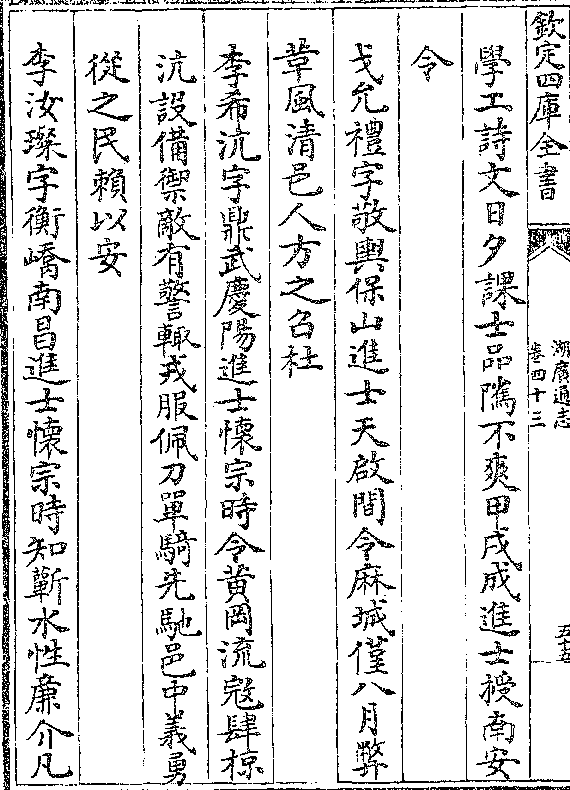 欽定四庫全書
湖廣通志
卷四十三
五十五
學工詩文日夕課士品隲不爽甲戌成進士授南安
令
戈允禮字敬輿保山進士天啟間令麻城僅八月弊
革風清邑人方之召杜
李希沆字鼎武慶陽進士懷宗時令黄岡流寇肆掠
沆設備禦敵有警輙戎服佩刀單騎先馳邑中義勇
從之民賴以安
李汝璨字衡嶠南昌進士懷宗時知蘄水性廉介凡